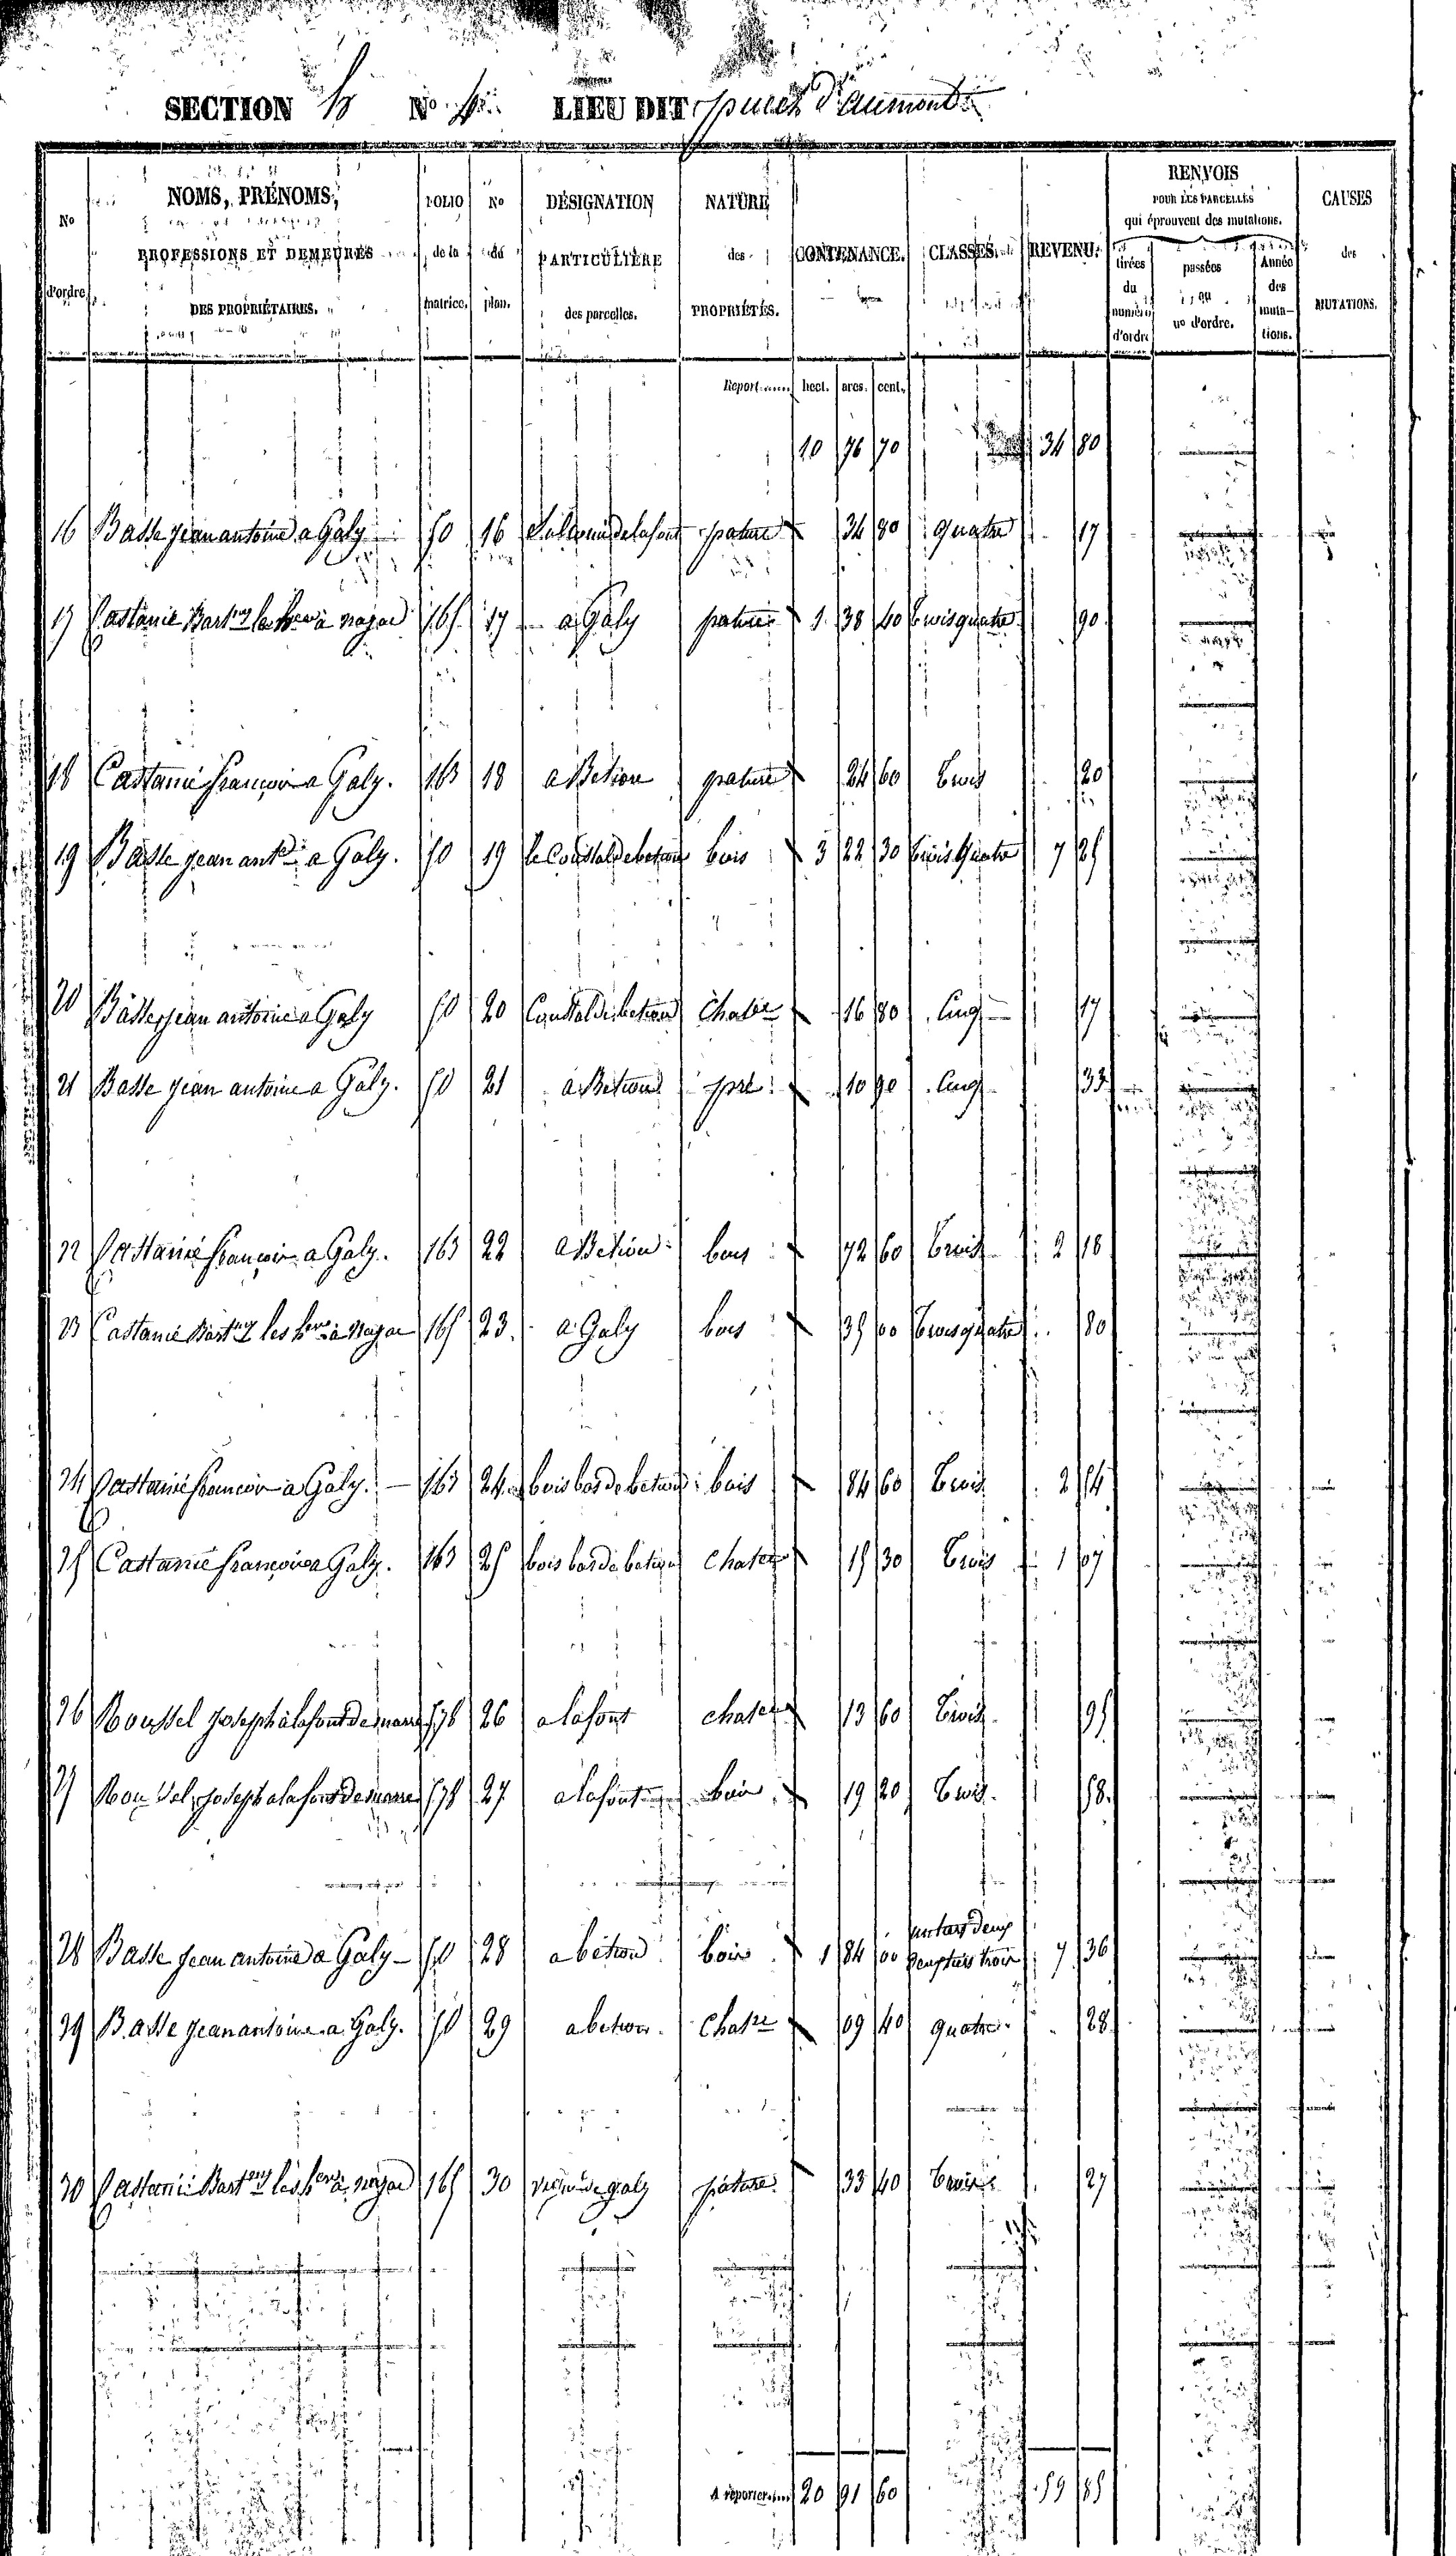 SECTION B No LIEU DIT puech d'aumont
No d'ordre NOMS, PRÉNOMS, PROFESSIONS ET DEMEURES DES PROPRIÉTAIRES. FOLIO de la matrice. No du plan. DÉSIGNATION PARTICULIÈRE des parcelles. NATURE des PROPRIÉTÉS. CONTENANCE. CLASSES. REVENU. RENVOIS POUR LES PARCELLES qui éprouvent des mutations. tirées du numéro d'ordre passées au no d'ordre. Année des mutations. CAUSES des MUTATIONS.
Report hect. ares. cent.
10 76 70 34 80
16 Basse jean antoine a Galy 50 16 pature 34 80 quatre 17
17 Castanié Bart.my les h.ers à najac 165 17 a Galy pature 1 38 40 trois quatre 90
18 Castanié françois a Galy. 163 18 a Betion pature 24 60 trois 20
19 Basse jean ant.e a Galy. 50 19 le Coustal de betion bois 3 22 30 trois quatre 7 25
20 Basse jean antoine a Galy 50 20 Coustal de betion Chat.re 16 80 Cinq 17
21 Basse jean antoine a Galy. 50 21 a Betion pré 10 90 Cinq 33
22 Castanié françois a Galy. 163 22 a Betion bois 72 60 trois 2 18
23 Castanié Bart.my les h.ers à Najac 165 23 a Galy bois 35 00 trois quatre 80
24 Castanié françois a Galy. 163 24 bois bas de betion bois 84 60 trois 2 54
25 Castanié françois a Galy. 163 25 bois bas de betion Chat.re 15 30 trois 1 07
26 Roussel joseph a lafont de 578 26 a lafont chat.re 13 60 trois 95
27 Roussel joseph a lafont de 578 27 a lafont bois 19 20 trois 58
28 Basse jean antoine a Galy 50 28 a betion bois 1 84 00 un tiers deux deux tiers trois 7 36
29 Basse jean antoine a Galy. 50 29 a betion Chat.re 09 40 quatre 28
30 Castanié Bart.my les h.ers à najac 165 30 de galy pature 33 40 trois 27
A reporter 20 91 60 59 85